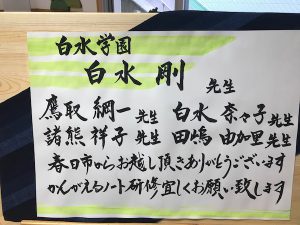 白水学園
白水 剛 先生
鷹取 綱一 先生 白水 奈々子 先生
諸熊 祥子 先生 田嶋 由加里 先生
春日市からお越し頂きありがとうございます
かんがえるノート研修宜しくお願い致します